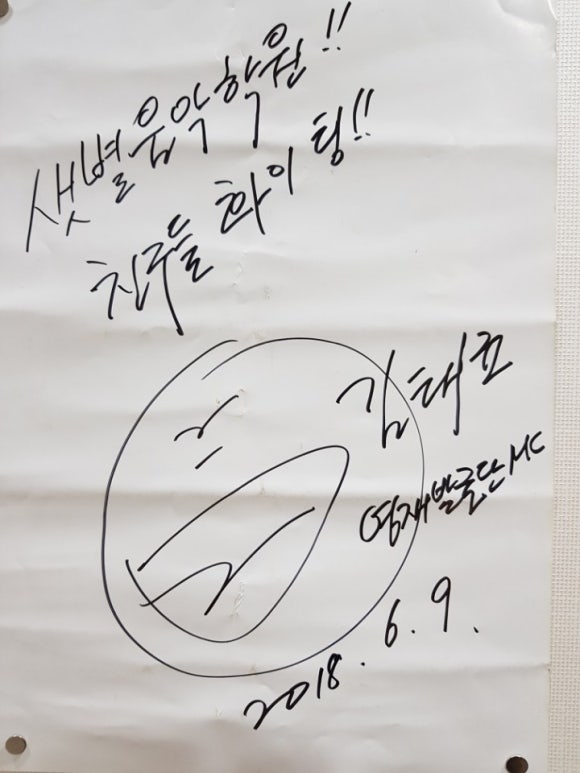 샛별음악학원!!
친구들 화이팅!!
김태균
영재발굴단 MC
2018. 6. 9.